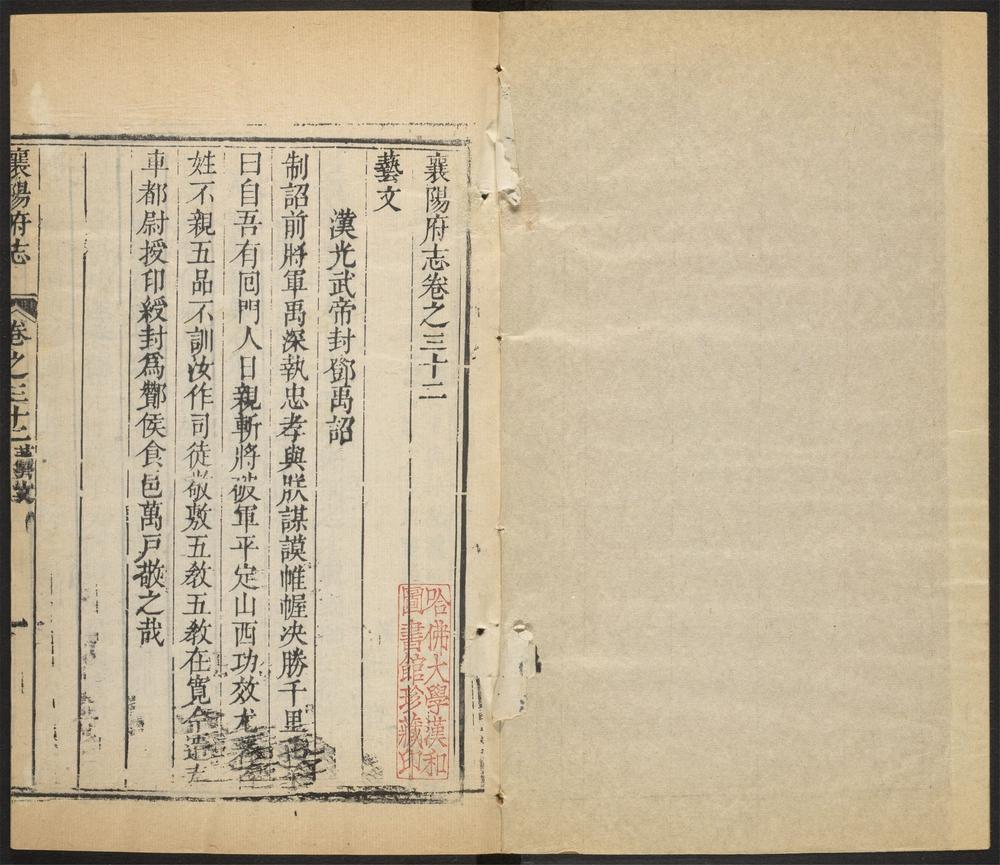 襄陽府志卷之三十二
藝文
漢光武帝封鄧禹詔
制詔前將軍禹深執忠孝與朕謀謨帷幄决勝千里
曰自吾有回門人日親斬將破軍平定山西功效尤
姓不親五品不訓汝作司徒敬敷五教五教在寬今遣
車都尉授印綬封爲酇侯食邑萬戸敬之哉
襄陽府志
卷之三十二
藝文
一
哈佛大學漢和
圖書館珍藏印